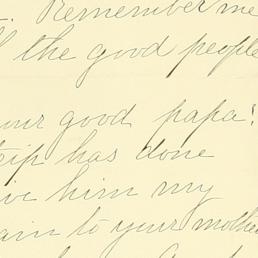 . Remember me
the good people
your good papa!
trip has done
him my
to your mother